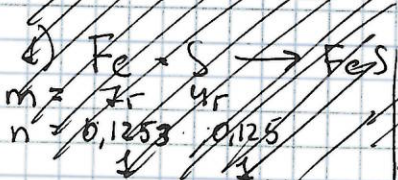 d) Fe + S → FeS
m = 7г 4г
n = 0,1253 0,125
1 1